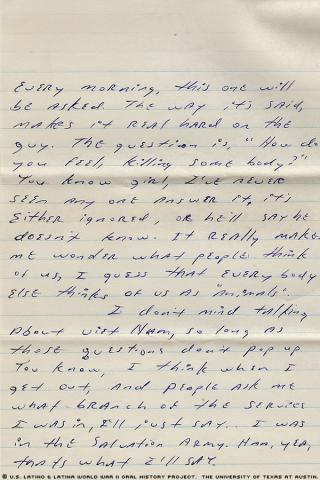 Every morning, this one will
be asked. The way it's said,
makes it real hard on the
guy. The question is, "How do
you feel, killing some body?"
You know girl, I've never
seen any one answer it, it's
either ignored, or he'll say he
doesn't know. It really makes
me wonder what people think
of us, I guess that every body
else thinks of us as "animals".
I don't mind talking
about Viet Nam, so long as
those questions don't pop up
You know, I think when I
get out, and people ask me
what branch of the service
I was in, I'll just say.. I was
in the Salvation Army. Haa, yea,
thats what I'll say.
© U.S. LATINO & LATINA WORLD WAR II ORAL HISTORY PROJECT. THE UNIVERSITY OF TEXAS AT AUSTIN.